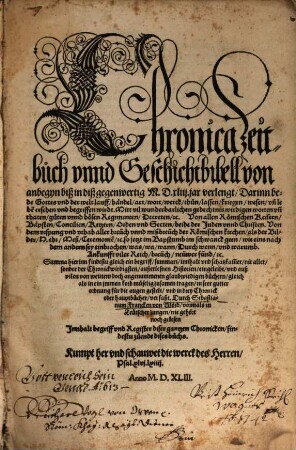 Chronica Zeit-
buͦch vnnd Geschichtbibell von
anbegyn biß in diß gegenwertig M.D.xliij. jar verlengt, Darinn be-
de Gottes vnd der welt lauff, hendel, art, wort, werck, thuͦn, lassen, kriegen, wesen, vnd le-
ben ersehen vnd begriffen wirt. Mit vil wunderbarlichen gedechtnis wirdigen worten vnd
thatten, guͦten vnnd boͤsen Regimenten, Decreten, ꝛc. Von allen Roͤmischen Keisern,
Baͤpsten, Concilien, Ketzern, Orden vnd Secten, beide der Juden vnd Christen. Von
dem vrsprung vnd vrhab aller breuͤch vnnd mißbreuͤch der Roͤmischen kirchen, als der Bil-
der, H. ehr, Meß, Ceremoni, ꝛc. so jetzt im Bapstumb im schwanck gant, wie eins nach
dem andern sey einbrochen, was, wa, wann, durch wenn, vnd warumb.
Ankunfft viler Reich, breuͤch, neuͤwer fuͤnd, ꝛc.
Summa hierinn findestu gleich ein begriff, summari, innhalt vnd schatzkam̄er, nit aller,
sonder der Chronickwirdigsten, außerleßnen Historien, eingeleibt, vnd auß
vilen von weittem doch angenummenen glaubwirdigen buͤchern, gleich
als in ein ymmenkorb muͤselig zuͦsamen tragen, in seer guͦtter
ordnung fuͤr die augen gestelt, vnd in drey Chronick
oder hauptbuͤcher, verfaßt. Durch Sebastia-
num Francken von Woͤrd, vormals in
Teuͤtscher zungen, nie gehoͤrt
noch gelesen
Innhalt begriff vnd Register diser gantzen Chronicken, fin-
destu zuͦ ende dises buͦchs.
Kumpt her vnd schauwet die werck des Herren,
Psal. xlvj. lxiiij.
Anno M. D. XLIII.